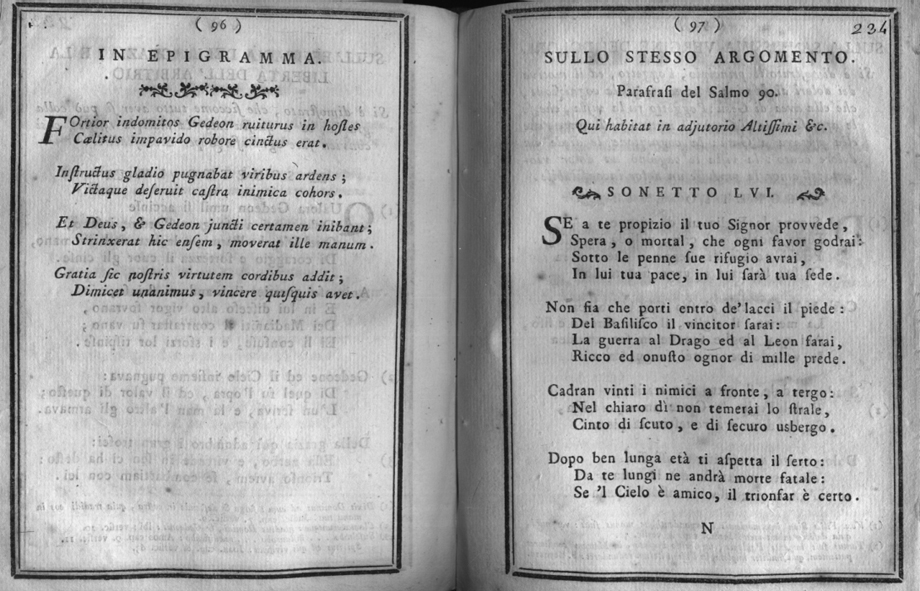 ( 96 )
IN EPIGRAMMA.
FOrtior indomitos Gedeon ruiturus in hoſtes
Cœlitus impavido robore cinctus erat.
Inſtructus gladio pugnabat viribus ardens ;
Victaque deſeruit caſtra inimica cohors.
Et Deus, & Gedeon juncti certamen inibant;
Strinxerat hic enſem, moverat ille manum.
Gratia ſic noſtris virtutem cordibus addit ;
Dimicet unanimus, vincere quiſquis avet.
( 97 )
234
SULLO STESSO ARGOMENTO.
Parafraſi del Salmo 90.
Qui habitat in adjutorio Altiſſimi &c.
SONETTO LVI.
SE a te propizio il tuo Signor provvede,
Spera, o mortal, che ogni favor godrai:
Sotto le penne ſue rifugio avrai,
In lui tua pace, in lui ſarà tua ſede.
Non fia che porti entro de' lacci il piede:
Del Baſiliſco il vincitor ſarai:
La guerra al Drago ed al Leon farai,
Ricco ed onuſto ognor di mille prede.
Cadran vinti i nimici a fronte, a tergo:
Nel chiaro dì non temerai lo ſtrale,
Cinto di ſcuto, e di ſecuro usbergo.
Dopo ben lunga età ti aſpetta il ſerto:
Da te lungi ne andrà morte fatale:
Se 'l Cielo è amico, il trionfar è certo.
N